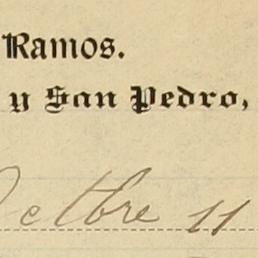 Ramos.
y San Pedro,
Octbre 11